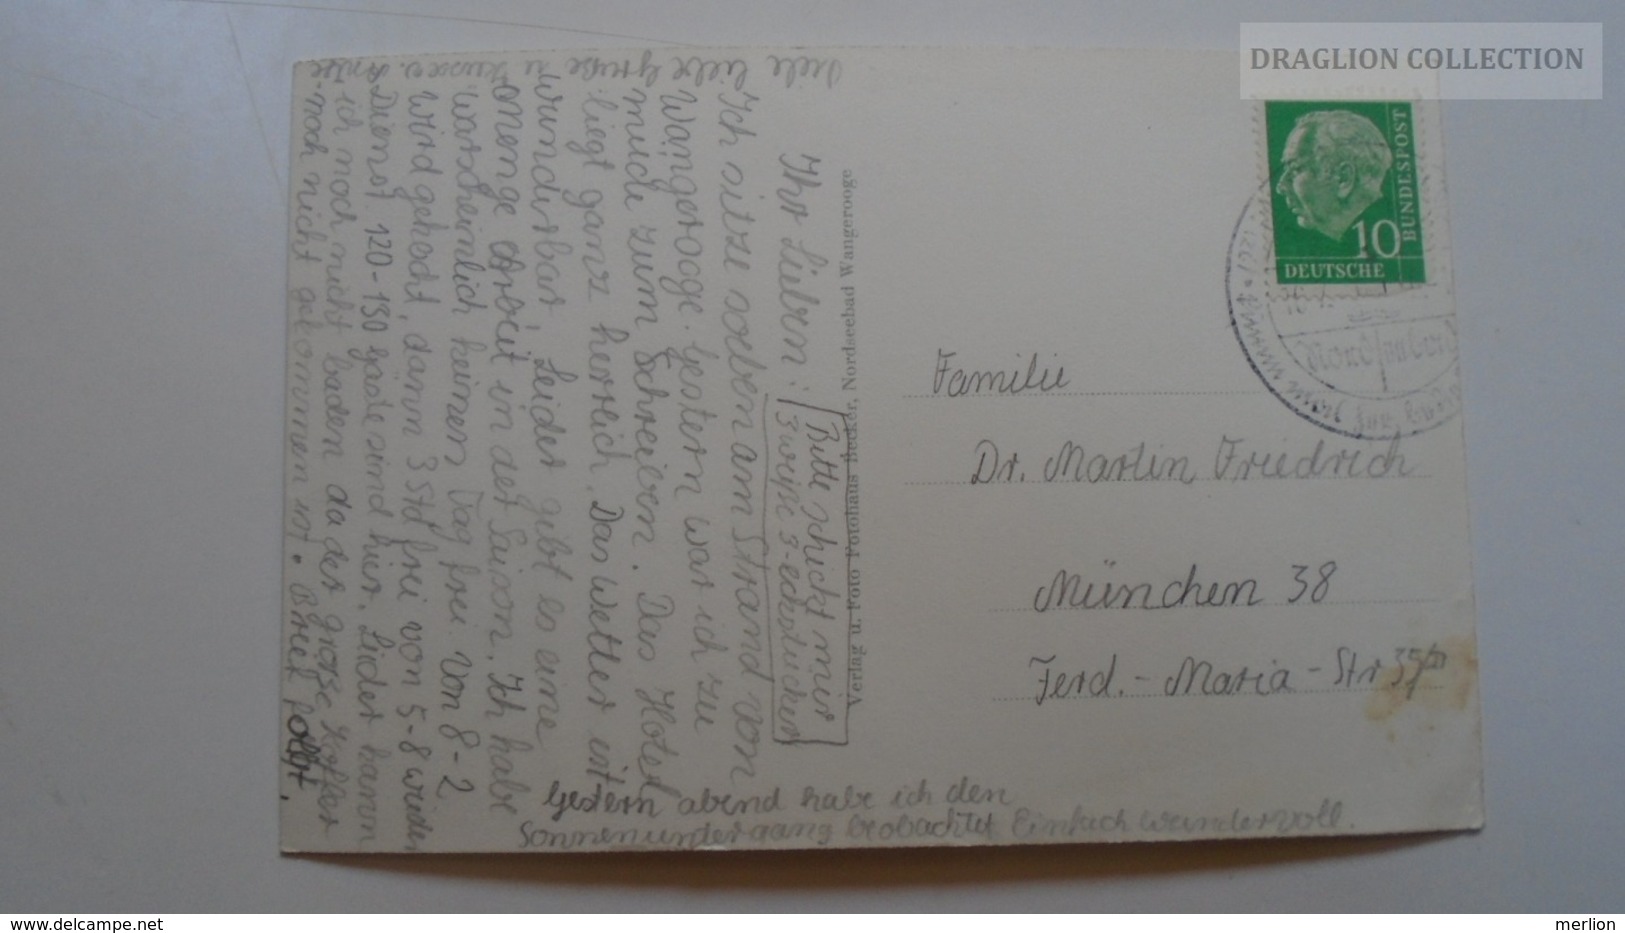 DRAGLION COLLECTION
Ihr Lieben!
Bitte schickt mir
3 weiße 3-ecks tücher
Ich sitze soeben am Strand von
Wangerooge. Gestern war ich zu
müde zum Schreiben. Das Hotel
liegt ganz herrlich. Das Wetter ist
wunderbar, Leider gibt es eine
Menge Arbeit in der Saison. Ich habe
warscheinlich keinen Tag frei. Von 8-2
wird gekocht, dann 3 Std frei von 5-8 wieder
Dienst. 120-150 Gäste sind hier. Leider kann
ich noch nicht baden da der grosse Koffer
noch nicht gekommen ist. Brief folgt.
Viele liebe Grüße u.
Gestern abend habe ich den
Sonnenuntergang beobachtet Einfach wundervoll.
Verlag u. Foto Fotohaus Becker, Nordseebad Wangerooge
10
DEUTSCHE
BUNDESPOST
Nordseebad
Familie
Dr. Martin Friedrich
München 38
Ferd.-Maria-Str
delcampe.net
merlion